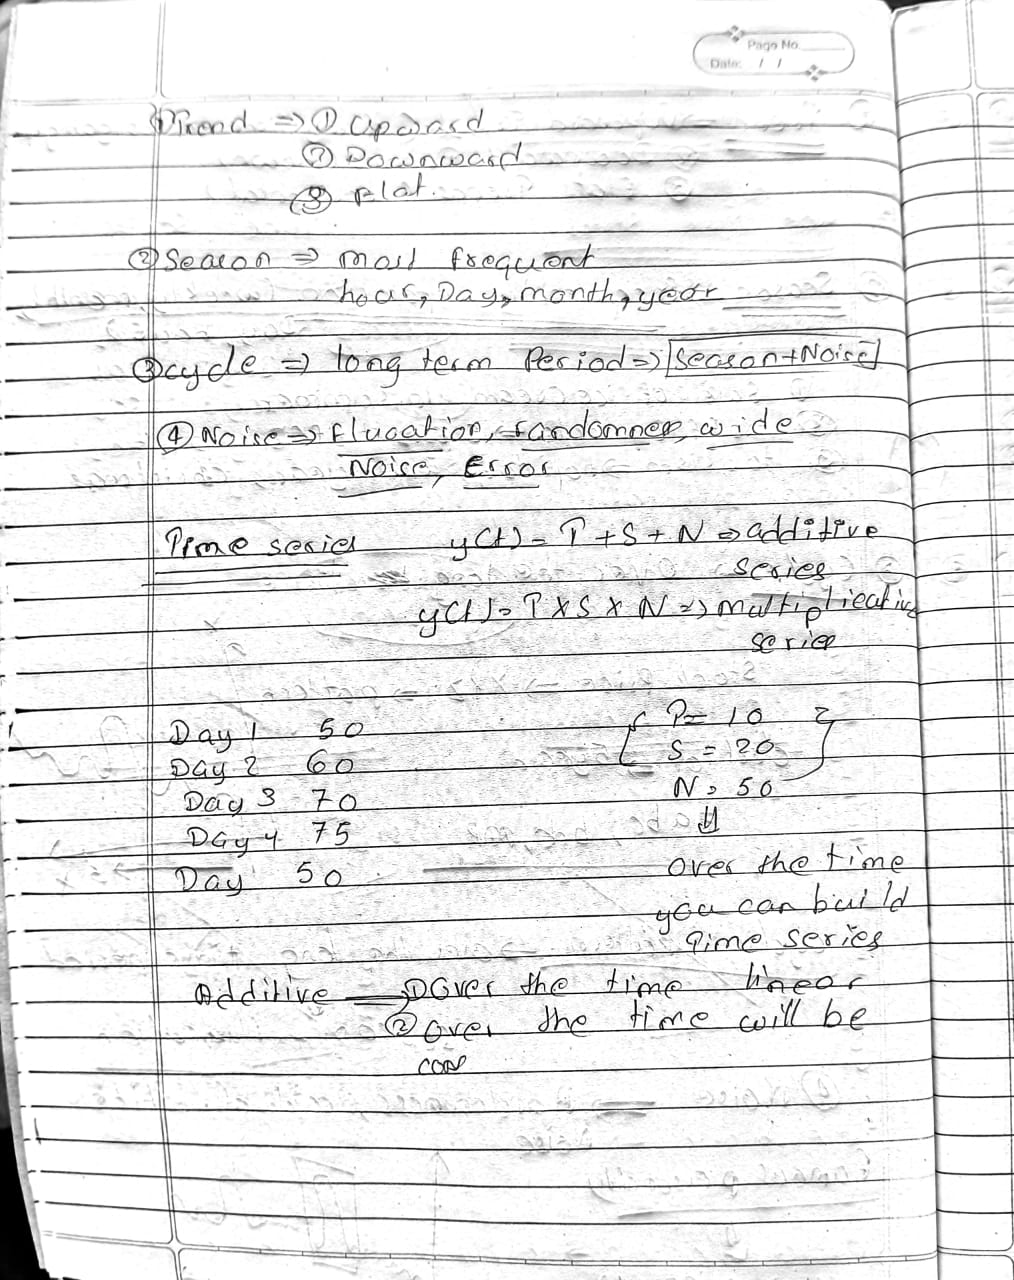 Page No.
Date: / /
① Trend ⇒ ① Upward
② Downward
③ Flat.
② Season ⇒ most frequent
hour, Day, month, year
③ cycle ⇒ long term Period ⇒ Season + Noise
④ Noise ⇒ flucation, randomnes, wide
Noise, Error
Time series y(t) = T + S + N ⇒ additive
series
y(t) = T X S X N ⇒ multiplicative
series
Day 1 50 T = 10
Day 2 60 S = 20
Day 3 70 N = 50
Day 4 75 ⇓
Day 50 over the time
you can build
Time series
Additive → ① Over the time linear
② over the time will be
con